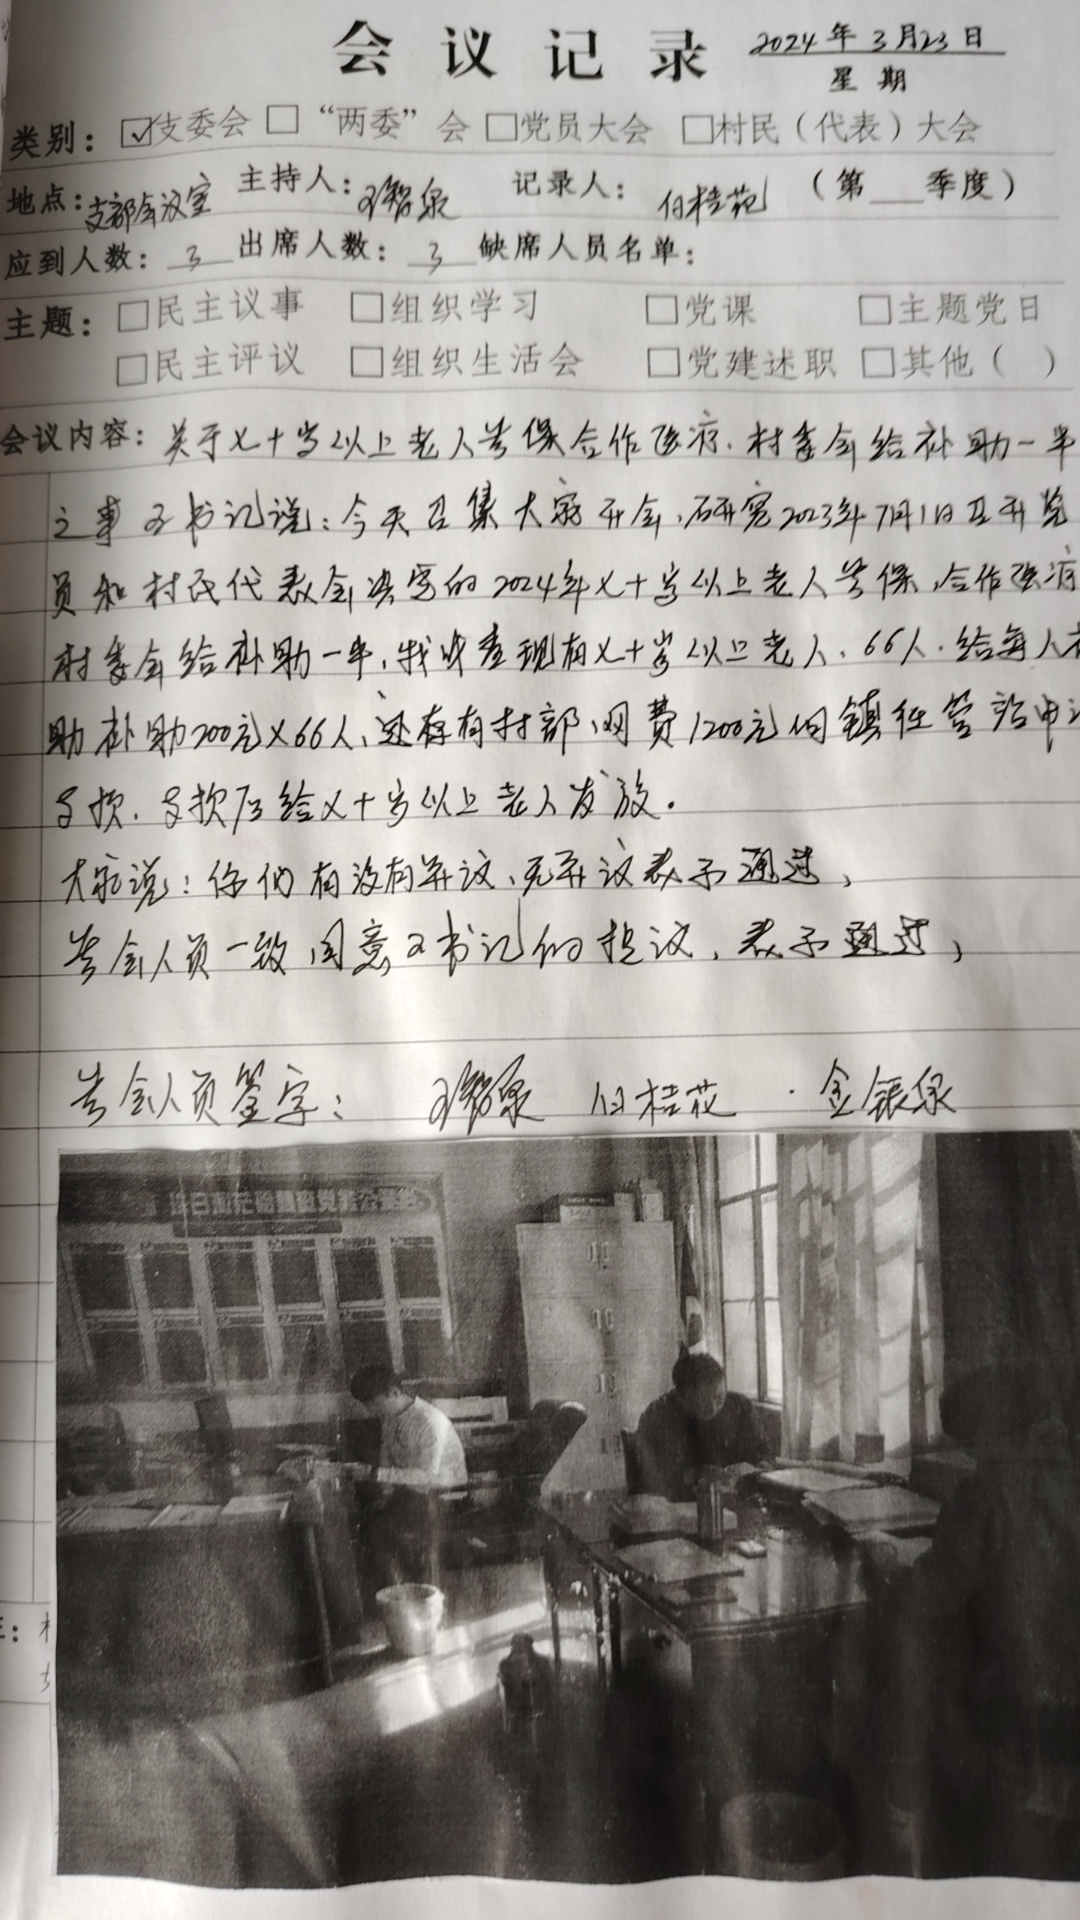 会议记录 2024年3月23日
星期
类别: ☑支委会 □“两委”会 □党员大会 □村民(代表)大会
地点:支部会议室 主持人: 记录人: 白桂花 (第 季度)
应到人数: 3 出席人数: 3 缺席人员名单:
主题: □民主议事 □组织学习 □党课 □主题党日
□民主评议 □组织生活会 □党建述职 □其他( )
会议内容: 关于七十岁以上老人参保合作医疗、村委会给补助一半
之事 王书记说:今天召集大家开会、研究2023年7月1日召开党
员和村民代表会决定的2024年七十岁以上老人参保、合作医疗
村委会给补助一半,我村查现有七十岁以上老人、66人.给每人
助补助200元×66人、还存有村部、网费1200元向镇经管站申
支款.支款后给七十岁以上老人发放.
大家说:你们有没有异议、无异议表示通过,
参会人员一致同意王书记的提议、表示通过,
参会人员签字: 白桂花 · 金银泉